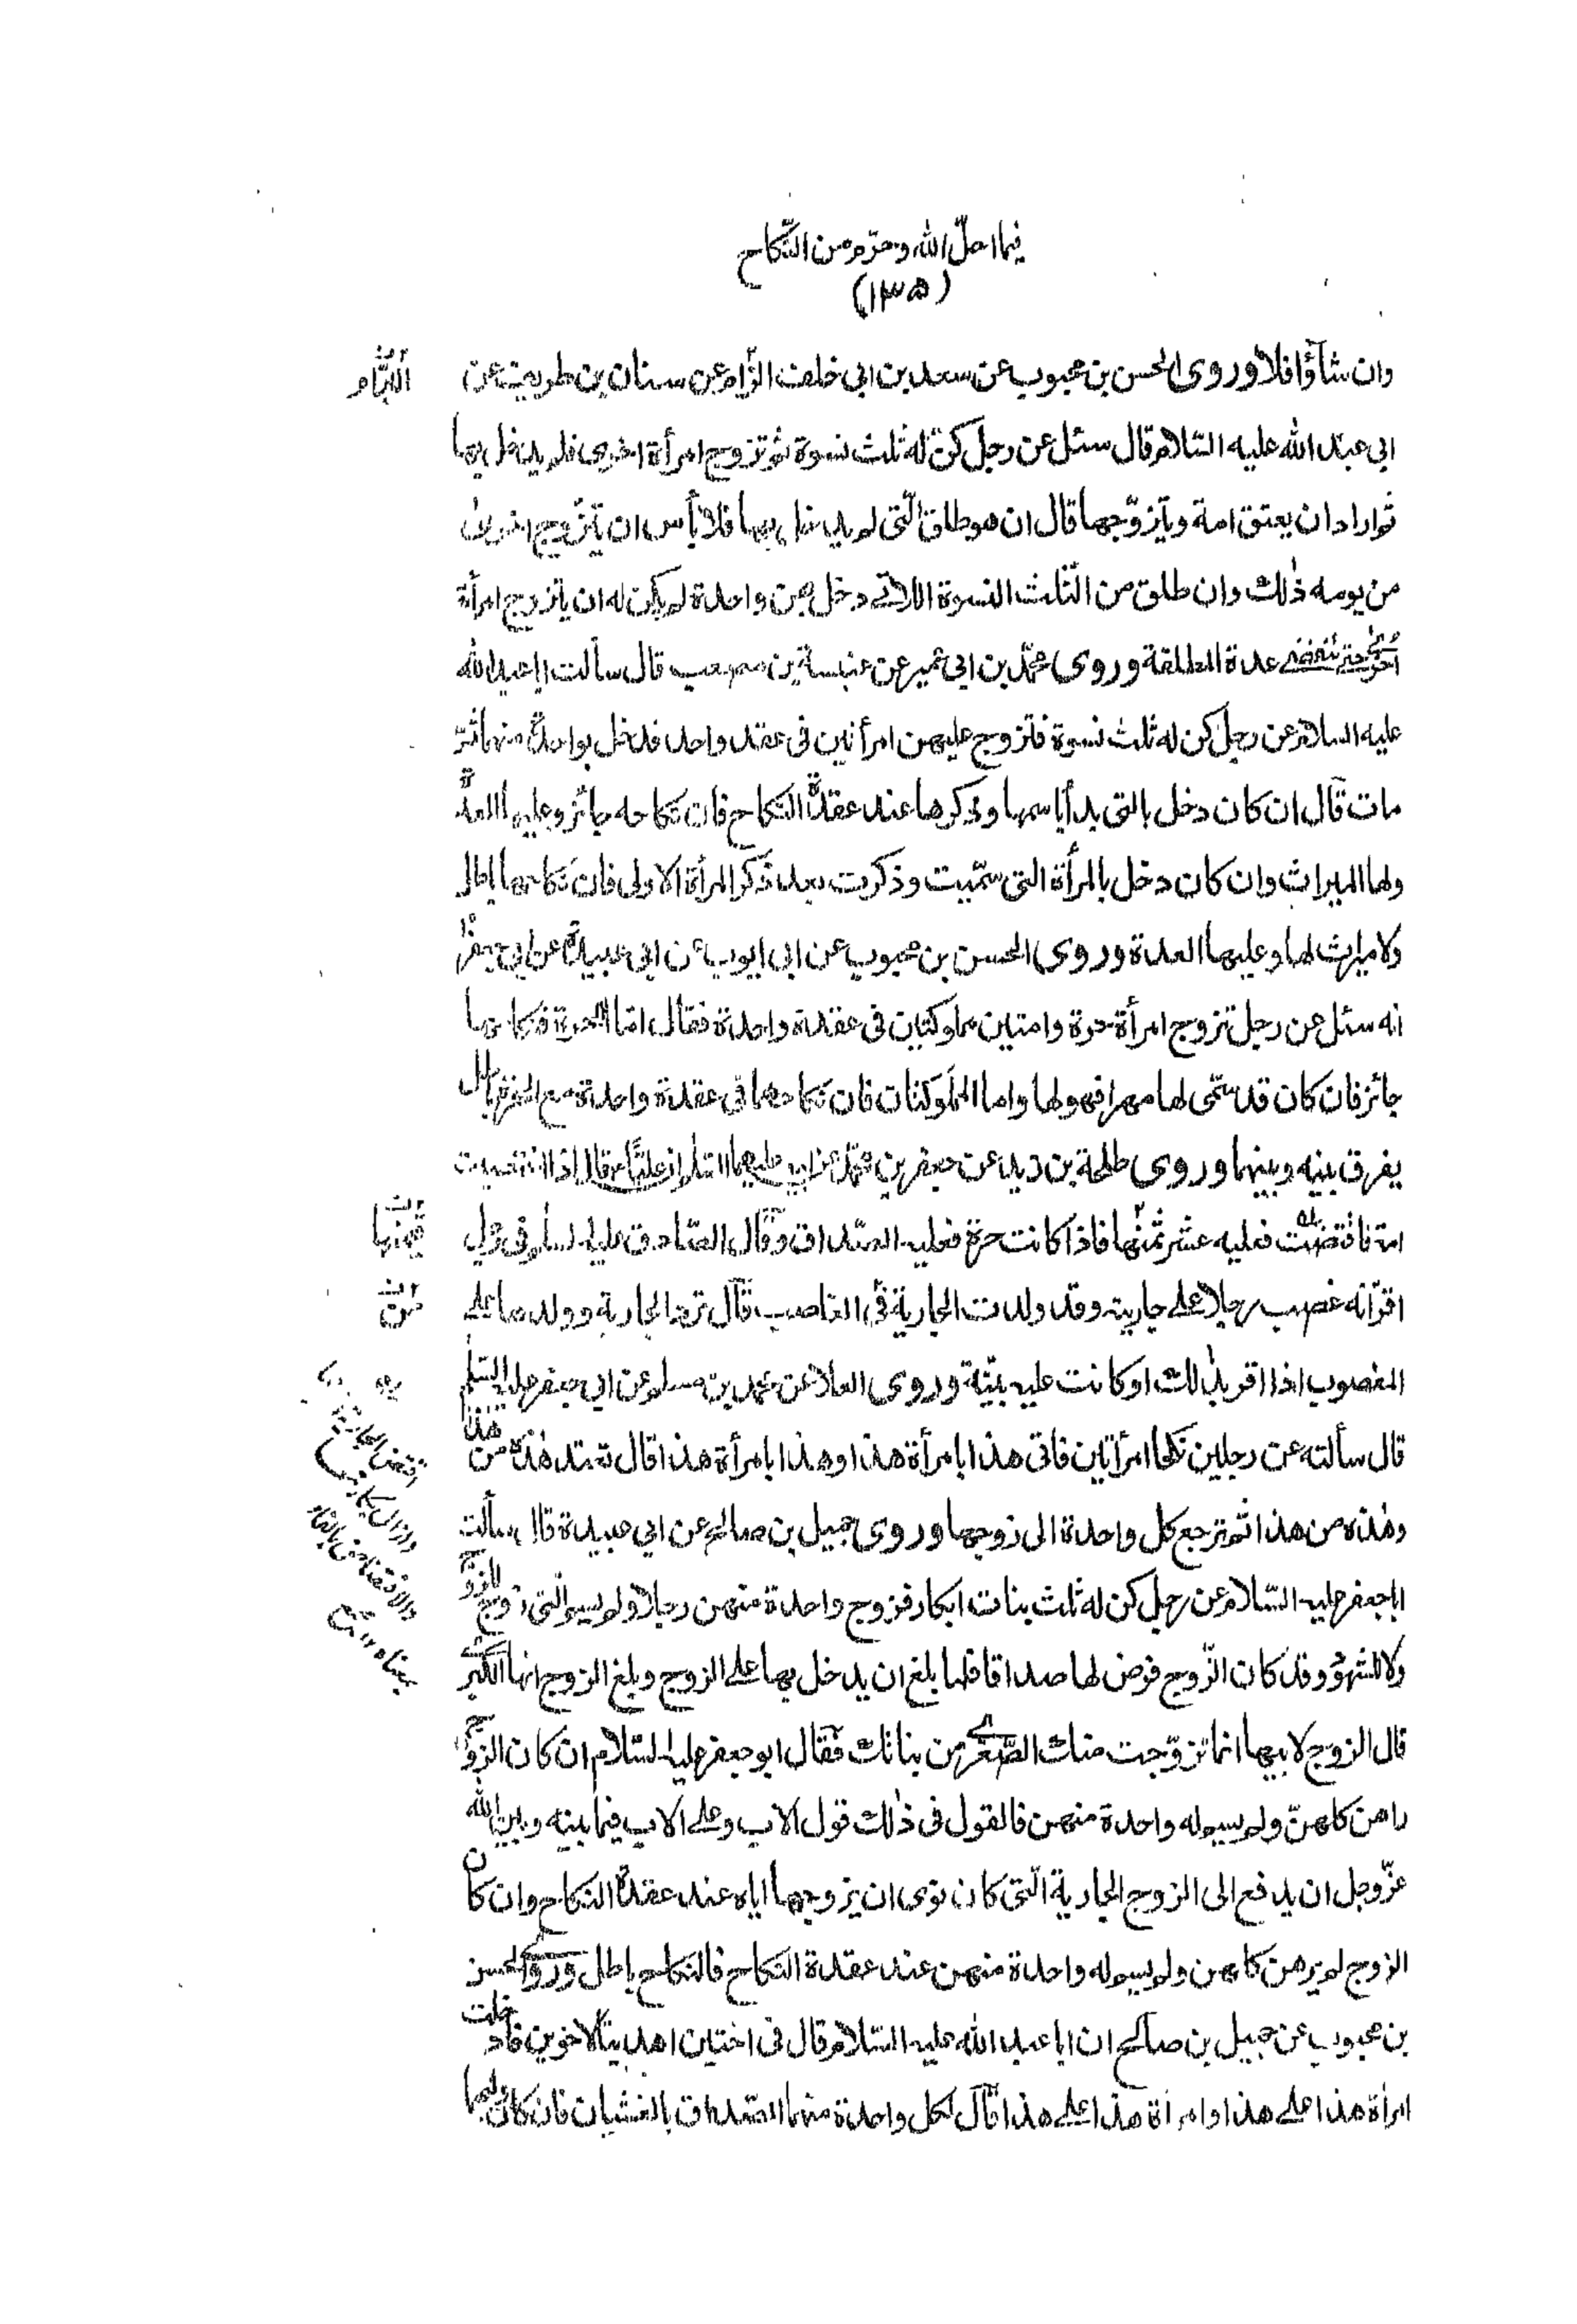 فيما احلّ الله وحرّم من النّكاح
(١٣٥)
وان شآؤا فلا وروى الحسن بن محبوب عن سعد بن ابى خلف الزّام عن سنان بن طريف عن
ابى عبد الله عليه السّلام قال سئل عن رجل كنّ له ثلث نسوة ثم تزوج امرأة اخرى فلم يدخل بها
ثم اراد ان يعتق امة ويتزوّجها قال ان هو طلق الّتى لم يدخل بها فلا بأس ان يتزّوج اخرى
من يومه ذٰلك وان طلق من الثّلث النسوة اللاتى دخل بهن واحدة لم يكن له ان يتزوج امرأة
اخرى حتى تنقضى عدة المطلقة وروى محمّد بن ابى عمير عن عنبسة بن مصعب قال سألت ابا عبد الله
عليه السلام عن رجل كن له ثلث نسوة فتزوج عليهن امرأتين فى عقد واحد فدخل بواحدة منهما ثمّ
مات قال ان كان دخل بالتى بدأ باسمها وذكرها عند عقدة النّكاح فان نكاحه جائز وعليها العدة
ولها الميراث وان كان دخل بالمرأة التى سمّيت وذكرت بعد ذكر المرأة الاولى فان نكاحها باطل
ولا ميراث لها وعليها العدة وروى الحسن بن محبوب عن ابى ايوب عن ابى عبيدة عن ابى جعفر
انه سئل عن رجل تزوج امرأة حرة وامتين مملوكتين فى عقدة واحدة فقال امّا الحرة فنكاحها
جائز فان كان قد سمّى لها مهرا فهو لها واما المملوكتان فان نكاحهما فى عقدة واحدة مع الحرة باطل
يفرق بينه وبينهما وروى طلحة بن زيد عن جعفر بن محمّد عن ابيه عليهما السّلام ان عليّا ع قال اذا اغتصبت
امة فاقتضت فعليه عشر ثمنها فاذا كانت حرة فعليه الصّداق وقال الصّادق عليه السلم فى رجل
اقرّ انه غصب رجلا على جاريته وقد ولدت الجارية فى الغاصب قال تردّ الجارية وولدها على
المغصوب اذا اقر بذٰلك او كانت عليه بيّنة وروى العلا عن محمد بن مسلم عن ابى جعفر عليه السّلم
قال سألته عن رجلين نكحا امرأتين فاتى هذا بامرأة هذا وهذا بامرأة هذا قال تعتد هٰذه من هذا
وهٰذه من هذا ثم ترجع كل واحدة الى زوجها وروى جميل بن صالح عن ابى عبيدة قال سألت
ابا جعفر عليه السّلام عن رجل كن له ثلث بنات ابكار فزوج واحدة منهن رجلا ولم يسم الّتى زوج للزوج
ولا للشهود وقد كان الزّوج فرض لها صداقا فلما بلغ ان يدخل بها على الزوج وبلغ الزوج انها الكبرى
قال الزوج لابيها انما تزوّجت منك الصّغرى من بناتك فقال ابو جعفر عليه السّلام ان كان الزوج
راهن كلهنّ ولم يسم له واحدة منهن فالقول فى ذٰلك قول الاب وعلى الاب فيما بينه وبين الله
عزّ وجل ان يدفع الى الزوج الجارية الّتى كان نوى ان يزوجها اياه عند عقدة النكاح وان كان
الزوج لم يرهن كلهن ولم يسم له واحدة منهن عند عقدة النكاح فالنكاح باطل وروى الحسن
بن محبوب عن جميل بن صالح ان ابا عبد الله عليه السّلام قال فى اختين اهديتا لاخوين فادخلت
امرأة هذا على هذا وامرأة هذا على هذا قال لكل واحدة منهما الصّداق بالغشيان فان كان وليهما
قيمتها
من